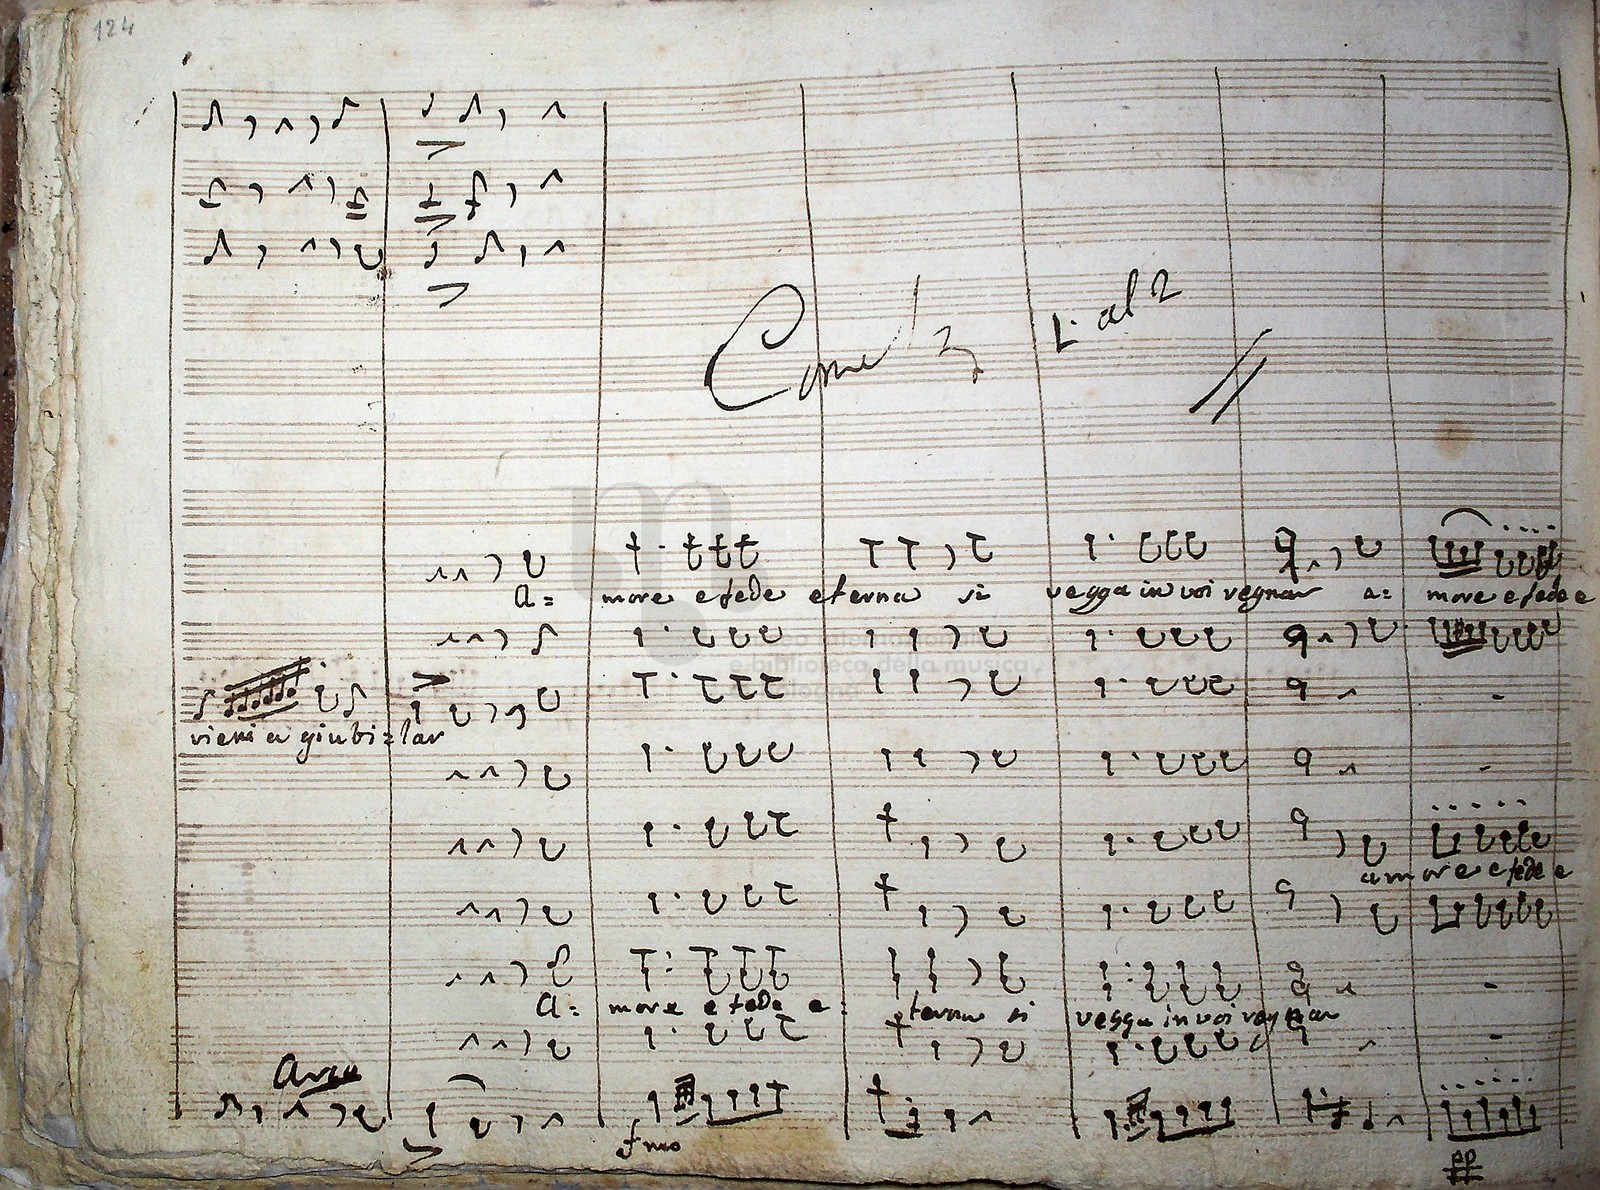 124
Come da L. al 2
A= more e fede eterna si vegga in voi regnar a= more e fede e
museo internazionale
e biblioteca della musica
bologna
vieni a giubi=lar
amore e fede e
A= more e fede e= terna si vegga in voi regnar
Arco
fmo
pp